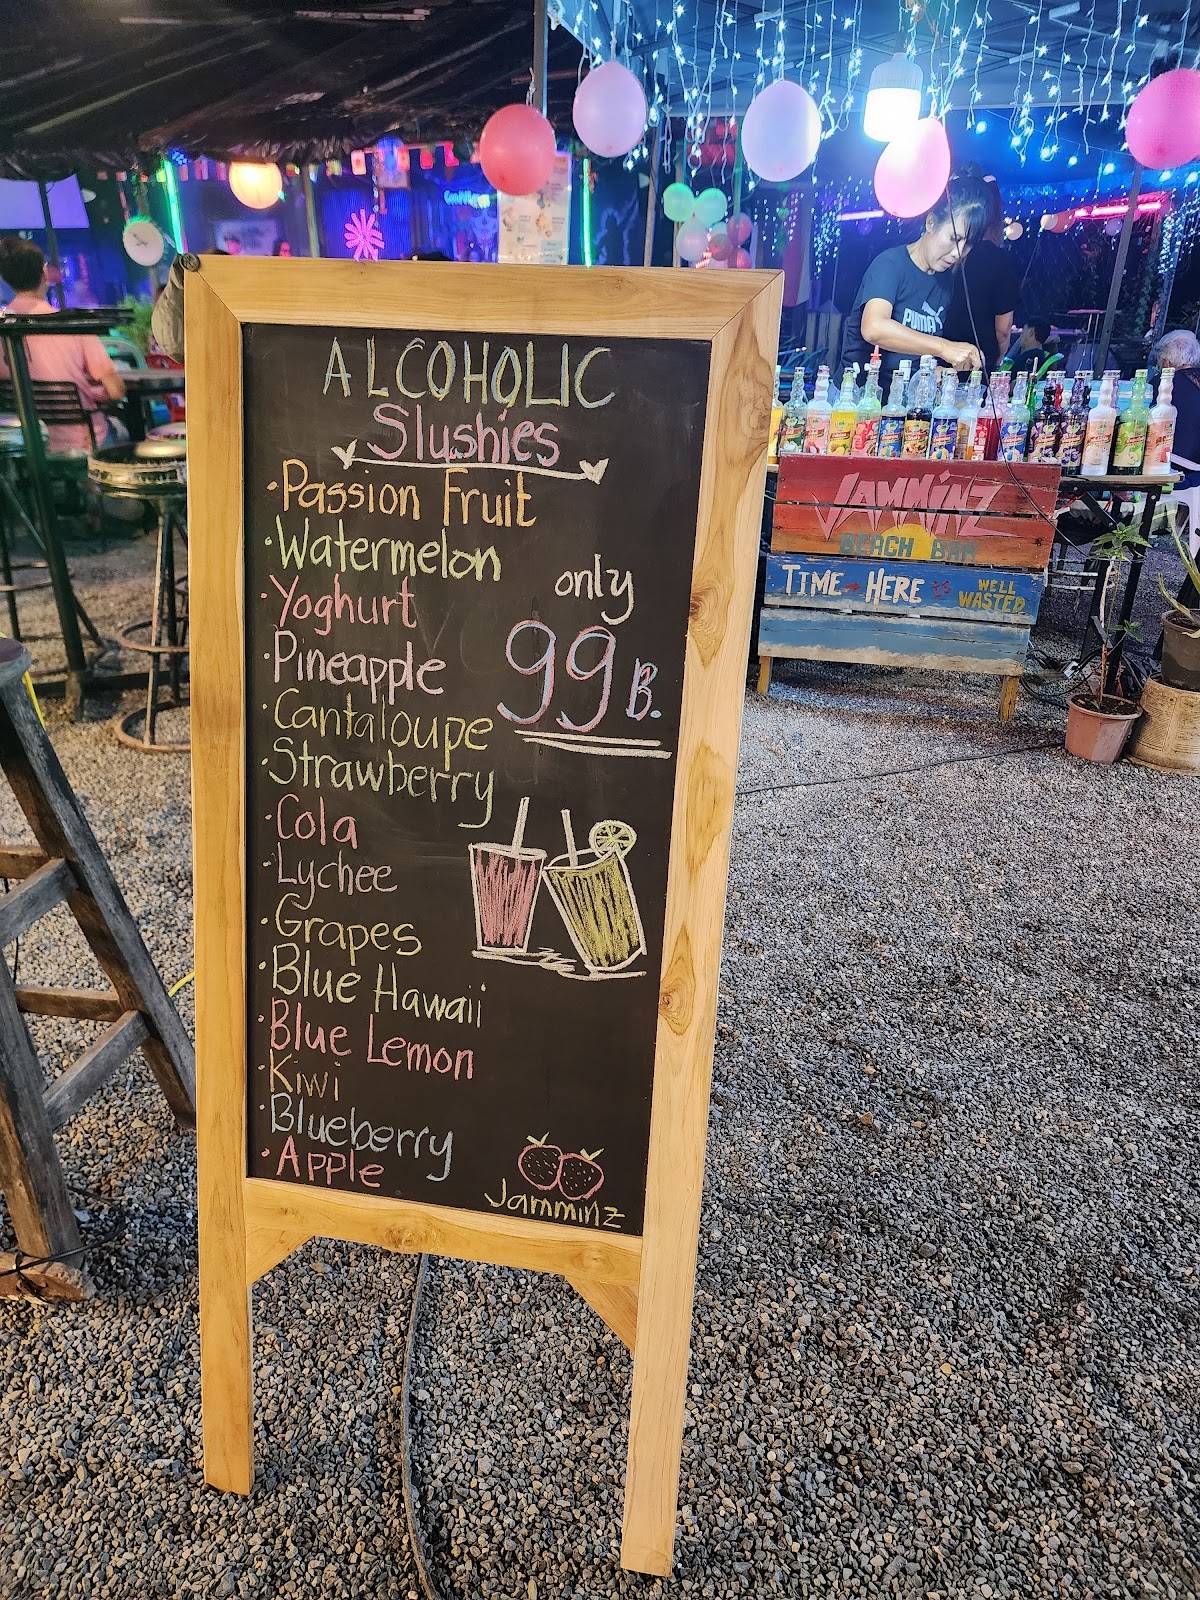 ALCOHOLIC
Slushies
·Passion Fruit
·Watermelon
·Yoghurt
·Pineapple
·Cantaloupe
·Strawberry
·Cola
·Lychee
·Grapes
·Blue Hawaii
·Blue Lemon
·Kiwi
·Blueberry
·Apple
only
99 B.
Jamminz
PUMA
JAMMINZ
BEACH BAR
TIME HERE IS WELL
WASTED